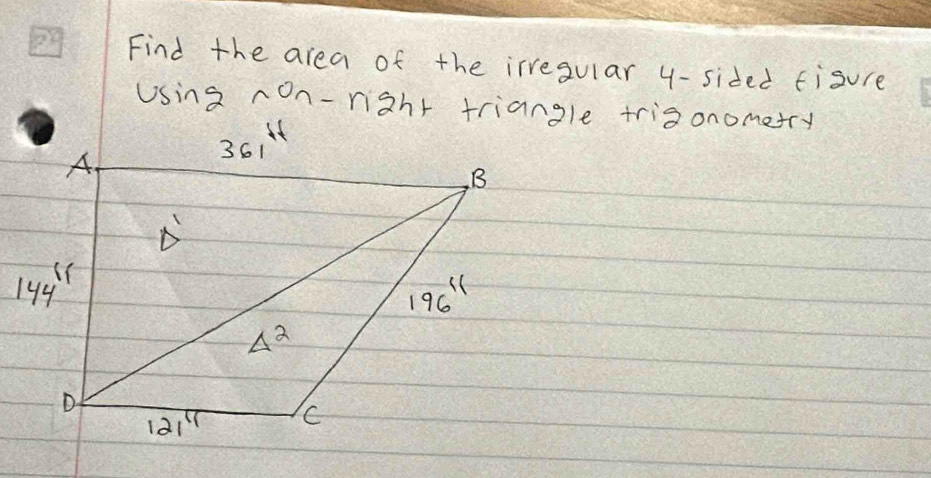 Find the area of the irregular 4-sided figure
Using non-right triangle trigonometry
361"
A
B
Δ1
144"
196"
Δ2
D
C
121"